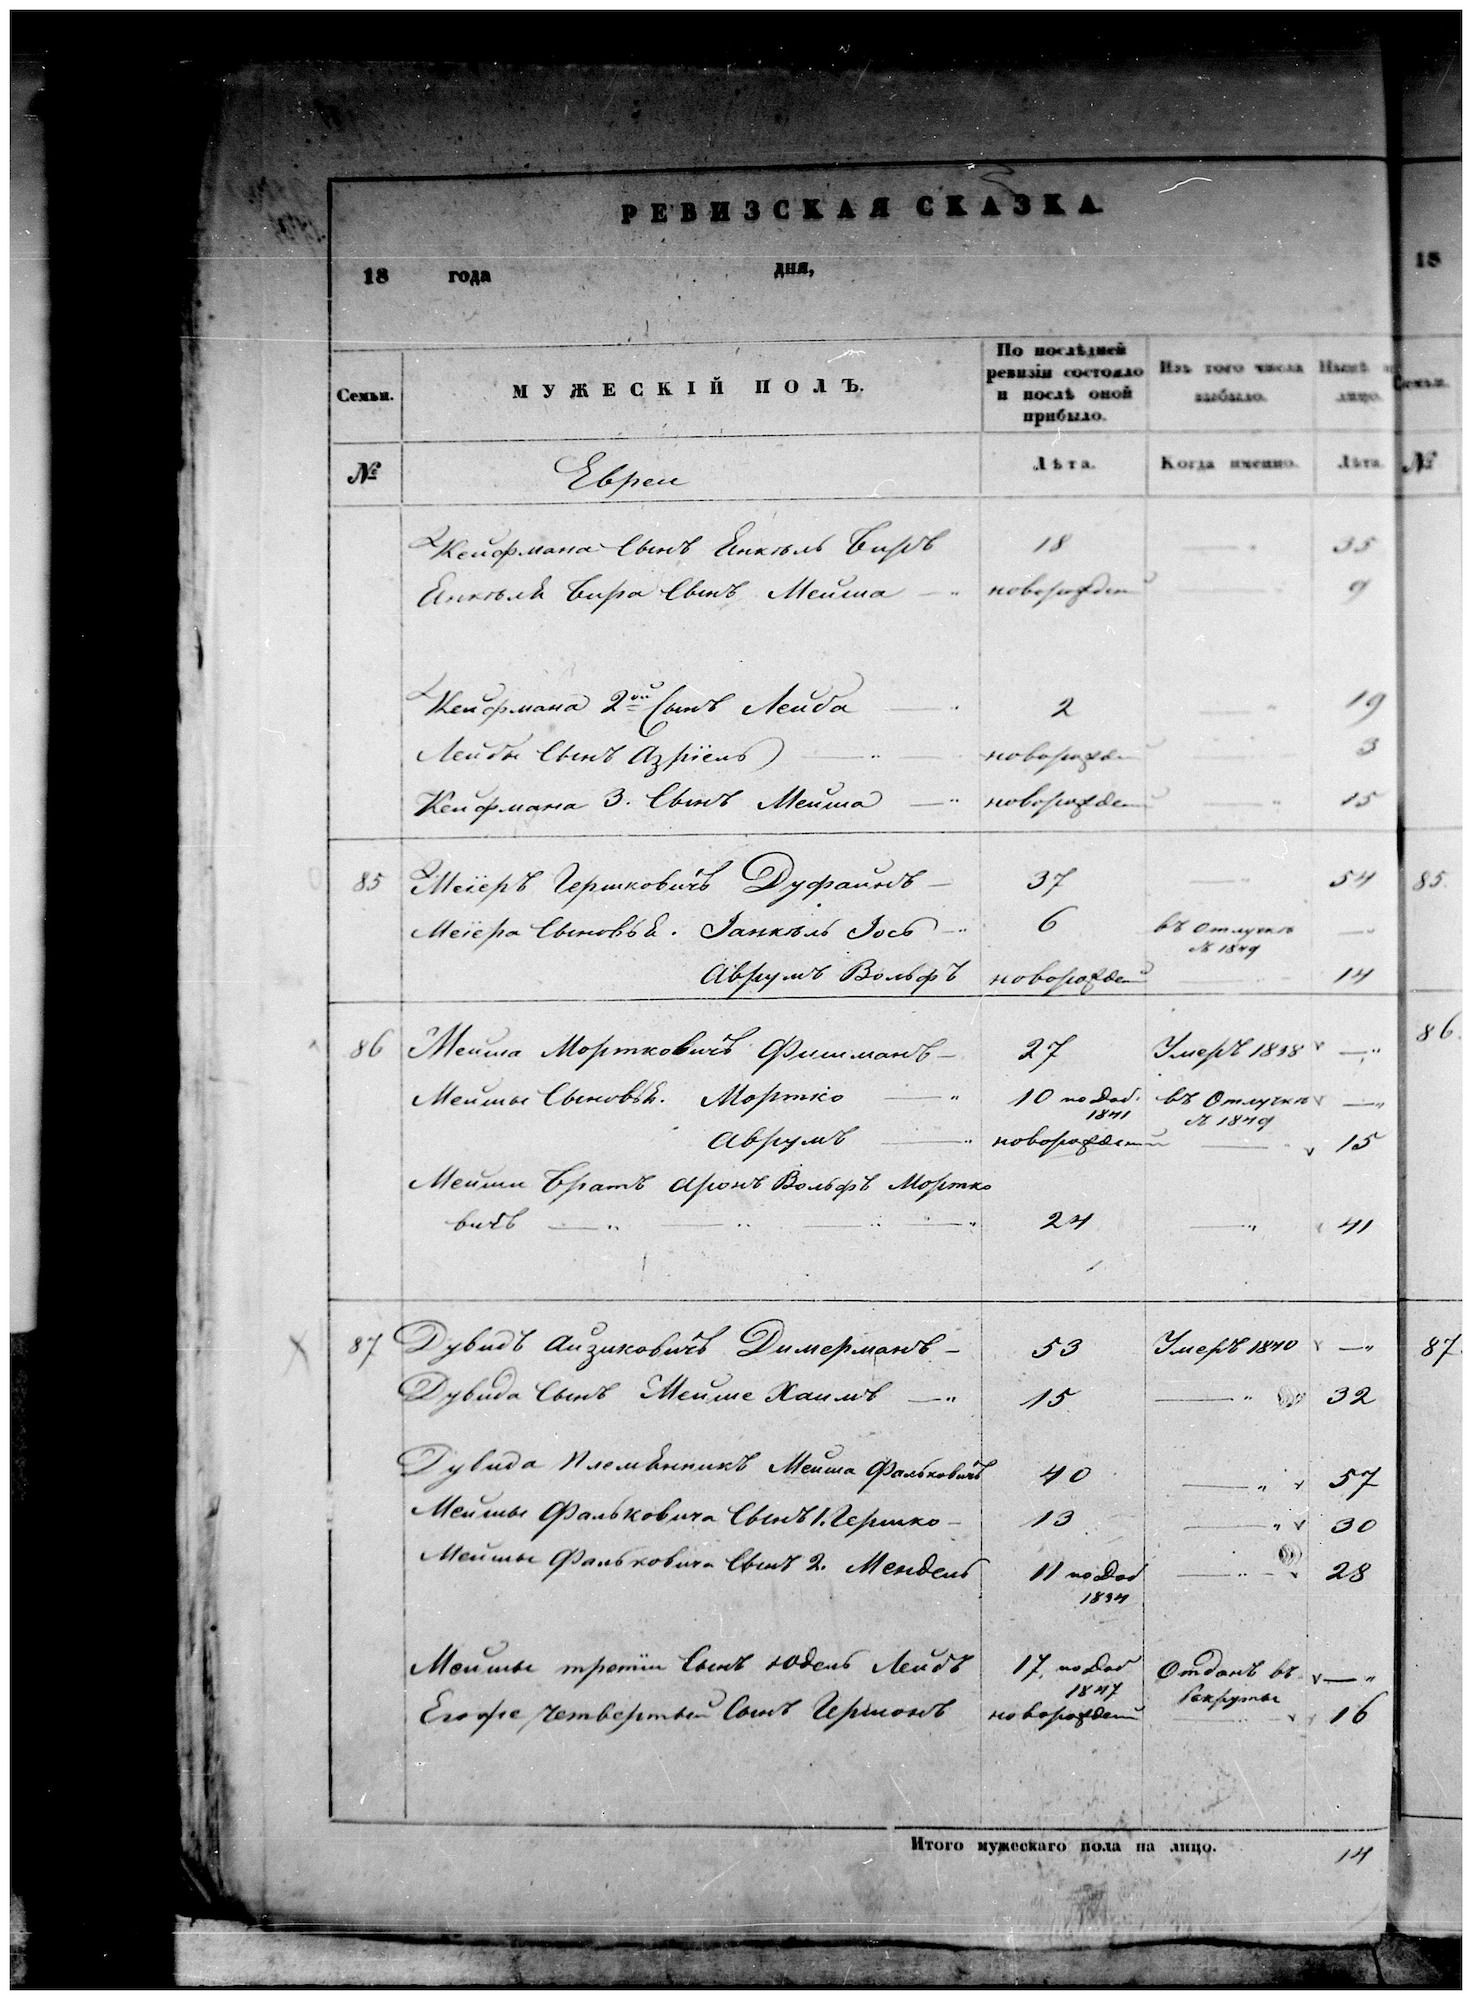 РЕВИЗСКАЯ СКАЗКА.
18 года дня,
18
Семьи. МУЖЕСКІЙ ПОЛЪ. По послѣдней ревизіи состояло и послѣ оной прибыло. Изъ того числа выбыло. Нынѣ на лицо. Семьи.
№ Евреи Лѣта. Когда именно. Лѣта. №
Кейфмана Сынъ Енкѣль Биръ 18 — 35
Енкѣля Бира Сынъ Мейша — новорожден — 9
Кейфмана 2ой Сынъ Лейба — 2 — 19
Лейбы Сынъ Азріель — новорожден — 3
Кейфмана 3. Сынъ Мейша — новорожден — 15
85 Меіеръ Гершковичъ Дуфаинъ — 37 — 54 85.
Меіера Сыновья. Іанкѣль Іось — 6 въ Отлучкѣ —
съ 1849
Аврумъ Вольфъ новорожден — 14
86 Мейша Мортковичъ Фишманъ — 27 Умеръ 1838 — 86.
Мейшы Сыновья. Мортко — 10 по Доб. въ Отлучкѣ —
1841 съ 1849
Аврумъ — новорожден — 15
Мейши Братъ Аронъ Вольфъ Мортко
вичъ — 24 — 41
87 Дувидъ Айзиковичъ Димерманъ — 53 Умеръ 1840 — 87.
Дувида Сынъ Мейше Хаимъ — 15 — 32
Дувида Племянникъ Мейша Фальковичъ 40 — 57
Мейшы Фальковича Сынъ 1. Гершко — 13 — 30
Мейшы Фальковича Сынъ 2. Мендель 11 по Доб — 28
1834
Мейшы третіи Сынъ Юдель Лейбъ 17 по Доб Отданъ въ —
1847 Рекруты
Егоже четвертый Сынъ Гершонъ новорожден — 16
Итого мужескаго пола на лицо. 14